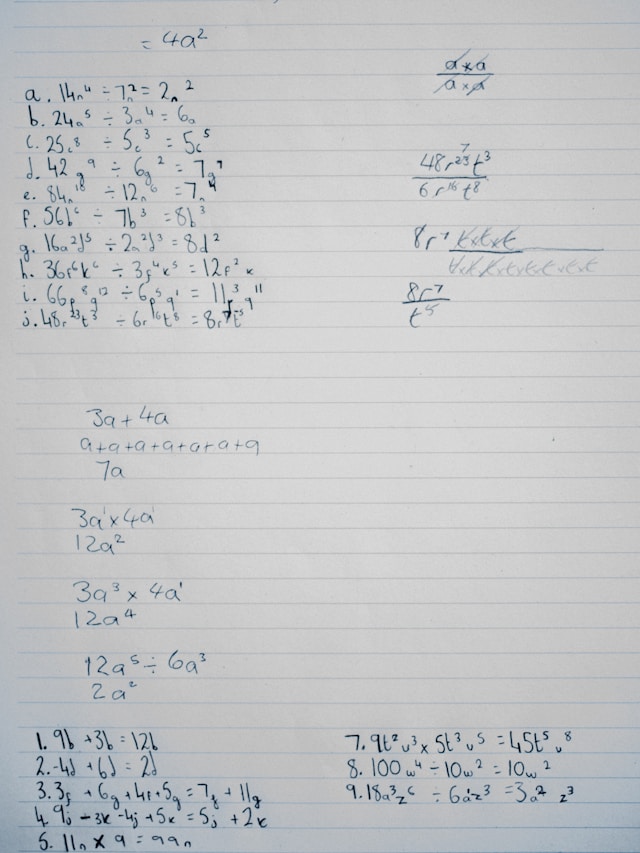 = 4a²
a. 14n⁴ ÷ 7n² = 2n²
b. 24a⁵ ÷ 3a⁴ = 6a
c. 25c⁸ ÷ 5c³ = 5c⁵
d. 42g⁹ ÷ 6g² = 7g⁷
e. 84n¹⁰ ÷ 12n⁶ = 7n⁴
f. 56b⁶ ÷ 7b³ = 8b³
g. 16a²d⁵ ÷ 2a²d³ = 8d²
h. 36f⁶k⁶ ÷ 3f⁴k⁵ = 12f²k
i. 66p⁸q¹² ÷ 6p⁵q¹ = 11p³q¹¹
j. 48r²³t³ ÷ 6r¹⁶t⁸ = 8r⁷t⁵
a×a
a×a
48r²³t³ 7
6r¹⁶t⁸
8r⁷ t×t×t
t×t×t×t×t×t×t×t
8r⁷
t⁵
3a + 4a
a+a+a+a+a+a+a
7a
3a¹ × 4a¹
12a²
3a³ × 4a¹
12a⁴
12a⁵ ÷ 6a³
2a²
1. 9b + 3b = 12b
2. -4d + 6d = 2d
3. 3f + 6g + 4f + 5g = 7f + 11g
4. 9j - 3k - 4j + 5k = 5j + 2k
5. 11n × 9 = 99n
7. 9t²v³ × 5t³v⁵ = 45t⁵v⁸
8. 100w⁴ ÷ 10w² = 10w²
9. 18a³z⁶ ÷ 6a¹z³ = 3a²z³